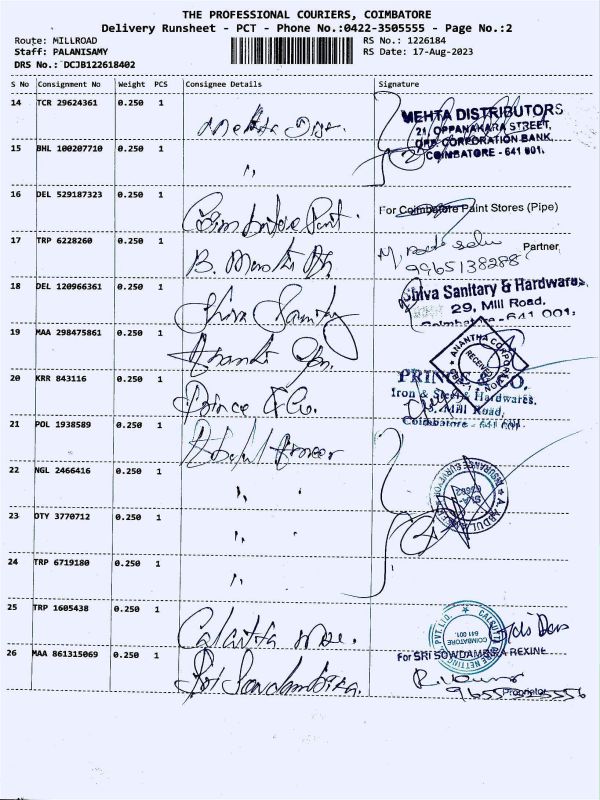 THE PROFESSIONAL COURIERS, COIMBATORE
Delivery Runsheet - PCT - Phone No.:0422-3505555 - Page No.:2
Route: MILLROAD
RS No.: 1226184
Staff: PALANISAMY
RS Date: 17-Aug-2023
DRS No.: DCJB122618402
S No Consignment No Weight PCS Consignee Details Signature
14 TCR 29624361 0.250 1 Mehta Dist.
MEHTA DISTRIBUTORS
21, OPPANAKARA STREET,
OPP. CORPORATION BANK,
COIMBATORE - 641 001.
15 BHL 100207710 0.250 1 "
16 DEL 529187323 0.250 1 Coimbatore Paint.
For Coimbatore Paint Stores (Pipe)
17 TRP 6228260 0.250 1 B.
Partner
9965138288
18 DEL 120966361 0.250 1 Shiva Sanitary
Shiva Sanitary & Hardwares,
29, Mill Road,
Coimbatore - 641 001.
19 MAA 298475861 0.250 1
ANANTHA CORPORATION
RECEIVED
20 KRR 843116 0.250 1 Prince & Co.
PRINCE & CO.
Iron & Steel & Hardwares,
Mill Road,
Coimbatore - 641 001.
21 POL 1938589 0.250 1
22 NGL 2466416 0.250 1 "
A. ABDUL
INSURANCE SURVEYOR
23 OTY 3770712 0.250 1 "
24 TRP 6719180 0.250 1 "
25 TRP 1605438 0.250 1 Calcutta
CALCUTTA
NETTING PVT. LTD.
COIMBATORE
641 001.
26 MAA 861315069 0.250 1 Sri Sowdambika.
For SRI SOWDAMBIKA REXINE
Proprietor